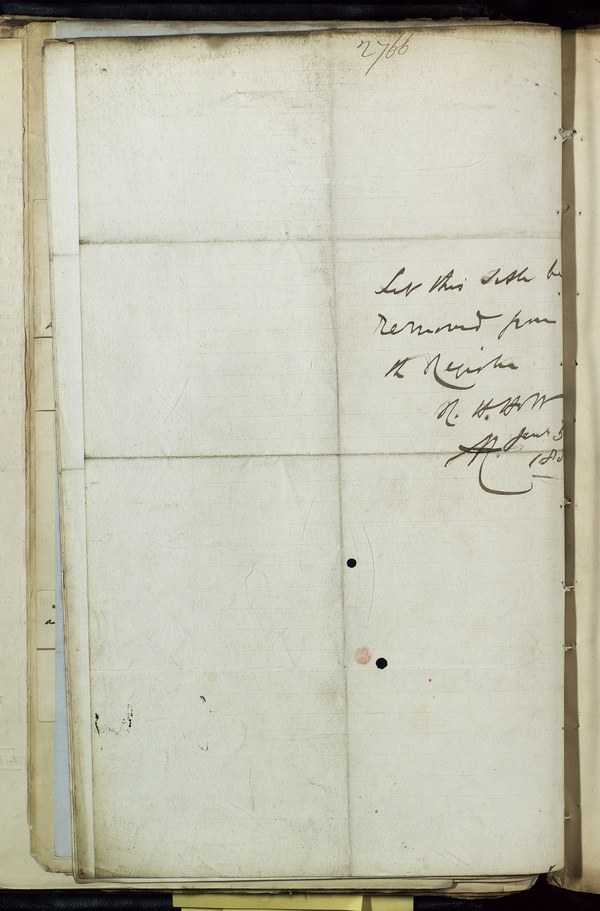 2766
Let this title be
removed from
the Register
R. H.
Jany